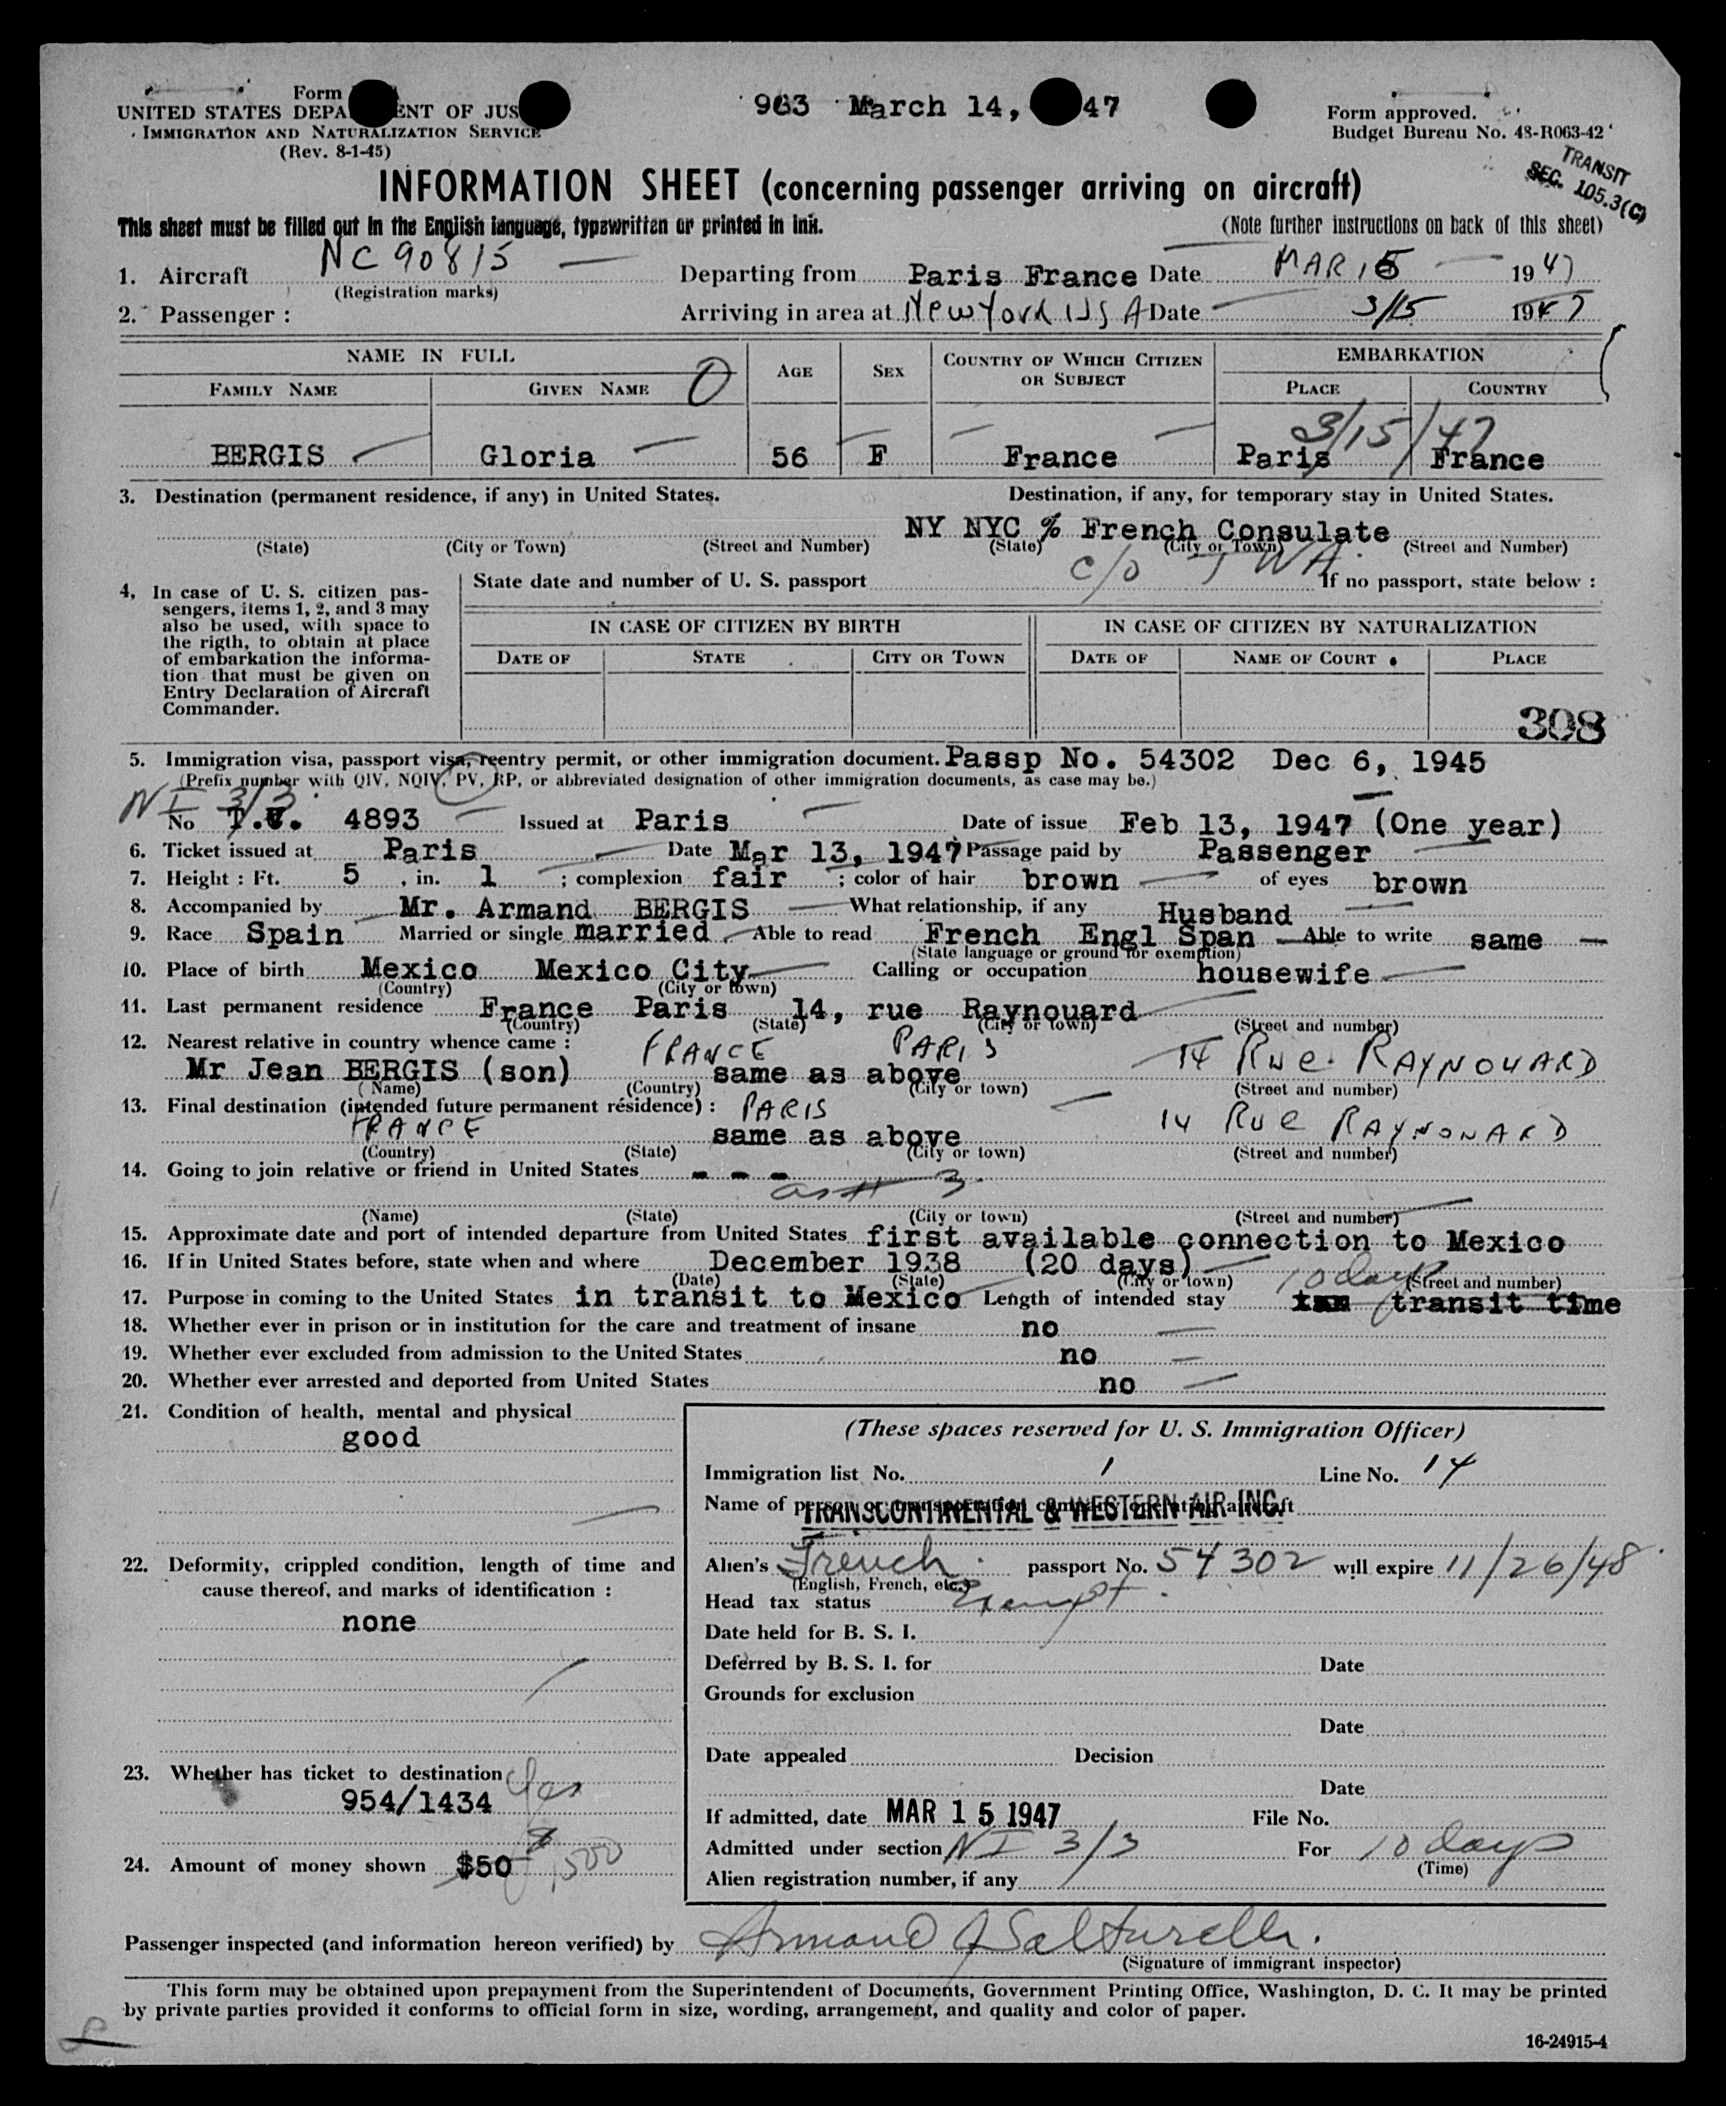 Form
963 March 14, 47
Form approved.
UNITED STATES DEPA ENT OF JUS
Budget Bureau No. 43-R063-42
IMMIGRATION AND NATURALIZATION SERVICE
(Rev. 8-1-45)
TRANSIT
SEC. 105.3(C)
INFORMATION SHEET (concerning passenger arriving on aircraft)
This sheet must be filled out in the English language, typewritten or printed in ink.
(Note further instructions on back of this sheet)
1. Aircraft NC 90815 Departing from Paris France Date MAR 15 1947
(Registration marks)
2. Passenger : Arriving in area at New York USA Date 3/15 1947
NAME IN FULL 0 AGE SEX COUNTRY OF WHICH CITIZEN OR SUBJECT EMBARKATION
FAMILY NAME GIVEN NAME PLACE COUNTRY
3/15/47
BERGIS Gloria 56 F France Paris France
3. Destination (permanent residence, if any) in United States. Destination, if any, for temporary stay in United States.
NY NYC % French Consulate
(State) (City or Town) (Street and Number) (State) (City or Town) (Street and Number)
c/o TWA
4, In case of U. S. citizen pas-
sengers, items 1, 2, and 3 may
also be used, with space to
the rigth, to obtain at place
of embarkation the informa-
tion that must be given on
Entry Declaration of Aircraft
Commander.
State date and number of U. S. passport If no passport, state below :
IN CASE OF CITIZEN BY BIRTH IN CASE OF CITIZEN BY NATURALIZATION
DATE OF STATE CITY OR TOWN DATE OF NAME OF COURT PLACE
308
5. Immigration visa, passport visa, reentry permit, or other immigration document. Passp No. 54302 Dec 6, 1945
(Prefix number with QIV, NQIV, PV, RP, or abbreviated designation of other immigration documents, as case may be.)
NI 3/3
No T.V. 4893 Issued at Paris Date of issue Feb 13, 1947 (One year)
6. Ticket issued at Paris Date Mar 13, 1947 Passage paid by Passenger
7. Height : Ft. 5 , in. 1 ; complexion fair ; color of hair brown of eyes brown
8. Accompanied by Mr. Armand BERGIS What relationship, if any Husband
9. Race Spain Married or single married Able to read French Engl Span Able to write same
(State language or ground for exemption)
10. Place of birth Mexico Mexico City Calling or occupation housewife
(Country) (City or town)
11. Last permanent residence France Paris 14, rue Raynouard
(Country) (State) (City or town) (Street and number)
12. Nearest relative in country whence came : FRANCE PARIS 14 Rue RAYNOUARD
Mr Jean BERGIS (son) same as above
(Name) (Country) (City or town) (Street and number)
13. Final destination (intended future permanent résidence) : PARIS
FRANCE same as above 14 Rue RAYNONARD
(Country) (State) (City or town) (Street and number)
14. Going to join relative or friend in United States - - -
as # 3
(Name) (State) (City or town) (Street and number)
15. Approximate date and port of intended departure from United States first available connection to Mexico
16. If in United States before, state when and where December 1938 (20 days)
(Date) (State) (City or town) (Street and number)
10 days
17. Purpose in coming to the United States in transit to Mexico Length of intended stay transit time
18. Whether ever in prison or in institution for the care and treatment of insane no
19. Whether ever excluded from admission to the United States no
20. Whether ever arrested and deported from United States no
21. Condition of health, mental and physical
good
22. Deformity, crippled condition, length of time and
cause thereof, and marks of identification :
none
23. Whether has ticket to destination Yes
954/1434
24. Amount of money shown $50 $1,500
(These spaces reserved for U. S. Immigration Officer)
Immigration list No. 1 Line No. 14
Name of person or transportation company operating aircraft
TRANSCONTINENTAL & WESTERN AIR INC.
Alien's French passport No. 54302 will expire 11/26/48
(English, French, etc.)
Head tax status Exempt
Date held for B. S. I.
Deferred by B. S. I. for Date
Grounds for exclusion
Date
Date appealed Decision
Date
If admitted, date MAR 15 1947 File No.
Admitted under section NI 3/3 For 10 days
(Time)
Alien registration number, if any
Passenger inspected (and information hereon verified) by Armand J Salturelli.
(Signature of immigrant inspector)
This form may be obtained upon prepayment from the Superintendent of Documents, Government Printing Office, Washington, D. C. It may be printed
by private parties provided it conforms to official form in size, wording, arrangement, and quality and color of paper.
16-24915-4